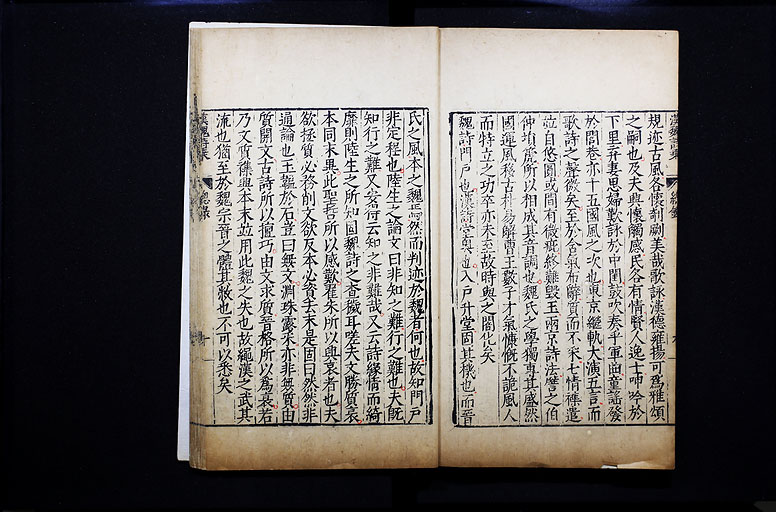 規迹古風各懷剞劂美哉歌詠漢德雍揚可爲雅頌
之嗣也及夫興懷觸感民各有情賢人逸士呻吟於
下里弃妻思婦歎詠於中閨鼓吹奏乎軍曲童謠發
於閭巷亦十五國風之次也東京繼軌大演五言而
歌詩之聲微矣至於含氣布辭質而不采七情襍遣
並自悠圓或間有微疵終難毀玉兩京詩法譬之伯
仲塤篪所以相成其音調也魏氏之學獨專其盛然
國運風移古朴易解曹王數子才氣慷慨不詭風人
而特立之功卒亦未至故時與之闇化矣
魏詩門戶也漢詩堂奧也入戶升堂固其機也而晉
氏之風本之魏焉然而判迹於魏者何也故知門戶
非定程也陸生之論文曰非知之難行之難也夫旣
知行之難又安得云知之非難哉又云詩緣情而綺
靡則陸生之所知固魏詩之查穢耳嗟夫文勝質衰
本同末異此聖哲所以感歎翟朱所以興哀者也夫
欲拯質必務削文欲反本必資去末是固曰然然非
通論也玉韞於石豈曰無文淵珠露采亦非無質由
質開文古詩所以擅巧由文求質晉格所以爲衰若
乃文質襍興本末並用此魏之失也故繩漢之武其
流也猶至於魏宗晉之體其敝也不可以悉矣
漢魏詩集
總錄